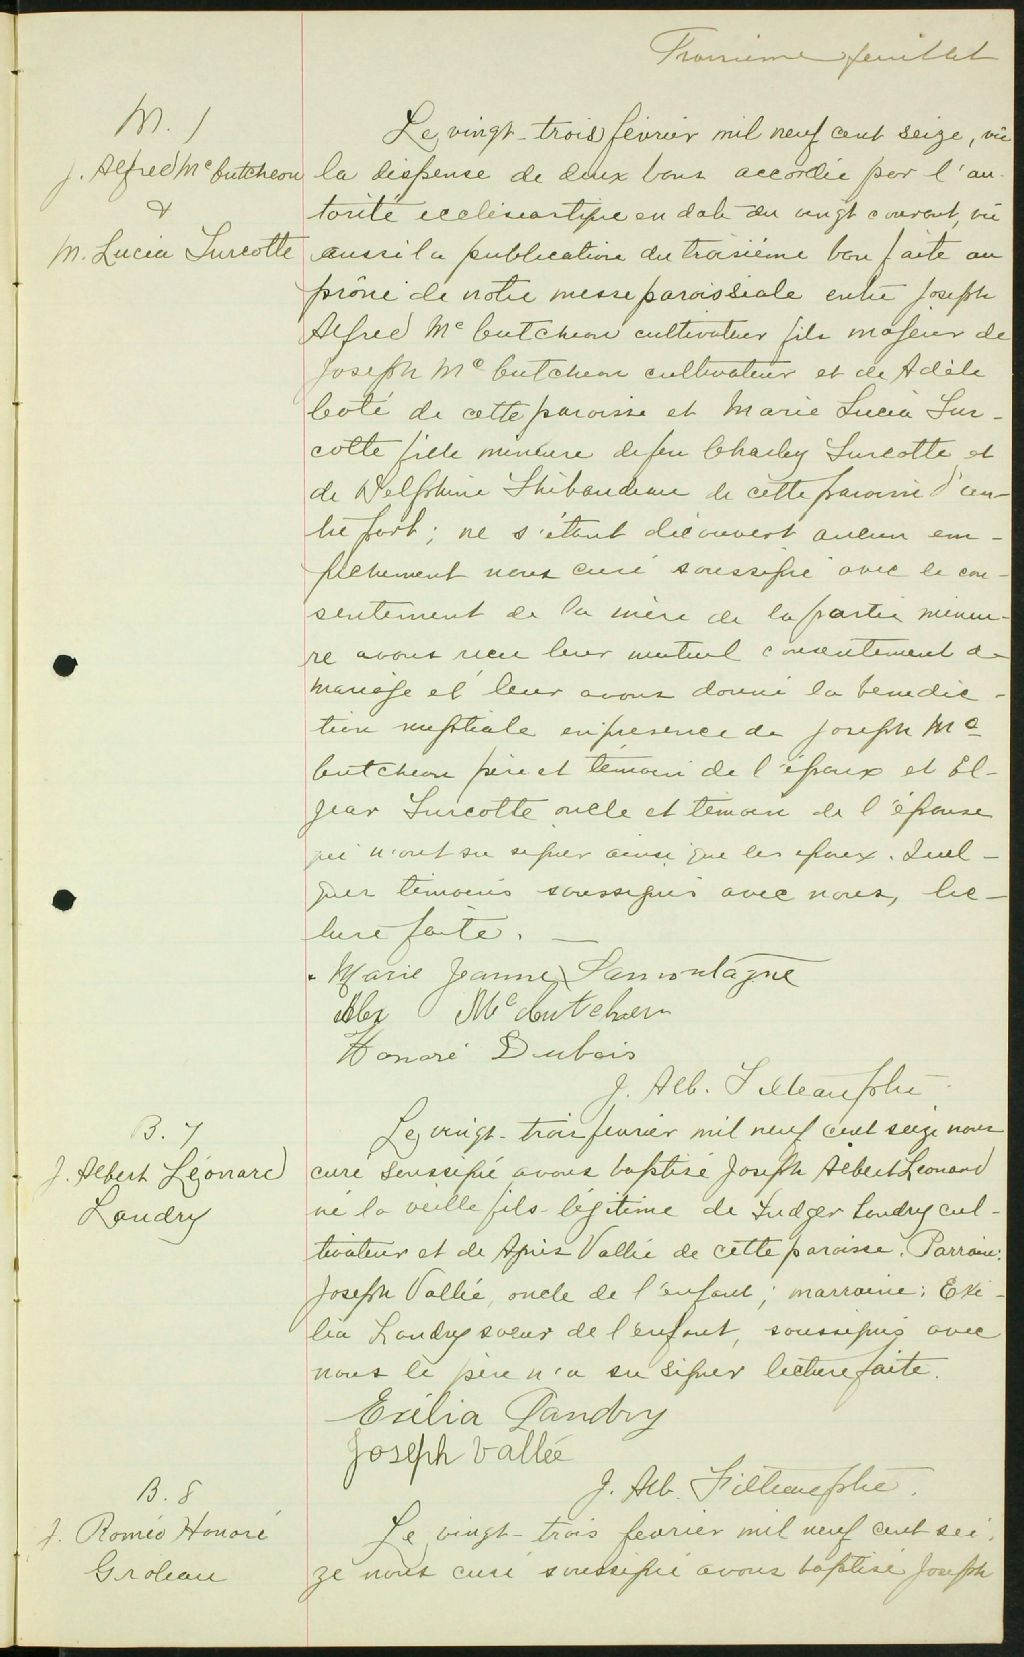 Troisième feuillet
M. 1
J. Alfred Mc Cutcheon
&
M. Lucia Turcotte
Le vingt-trois février mil neuf cent seize, vu
la dispense de deux bans accordée par l'au-
torité ecclésiastique en date du vingt courant, vu
aussi la publication du troisième ban faite au
prône de notre messe paroissiale entre Joseph
Alfred Mc Cutcheon cultivateur fils majeur de
Joseph Mc Cutcheon cultivateur et de Adèle
Coté de cette paroisse et Marie Lucia Tur-
cotte fille mineure de feu Charley Turcotte et
de Delphine Thibaudeau de cette paroisse d'au-
tre part; ne s'étant découvert aucun em-
pêchement nous curé soussigné avec le con-
sentement de la mère de la partie mineu-
re avons reçu leur mutuel consentement de
mariage et leur avons donné la bénédic-
tion nuptiale en présence de Joseph Mc
Cutcheon père et témoin de l'époux et El-
zéar Turcotte oncle et témoin de l'épouse
qui n'ont su signer ainsi que les époux. Quel-
ques témoins soussignés avec nous, lec-
ture faite. —
Marie Jeanne Lamontagne
Alex Mc Cutcheon
Honoré Dubois
J. Alb. Filteau ptre
B. 7
J. Albert Léonard
Landry
Le vingt-trois février mil neuf cent seize nous
curé soussigné avons baptisé Joseph Albert Léonard
né la veille fils légitime de Ludger Landry cul-
tivateur et de Agnès Vallée de cette paroisse. Parrain:
Joseph Vallée, oncle de l'enfant; marraine: Exé-
lia Landry soeur de l'enfant, soussignés avec
nous le père n'a su signer lecture faite.
Exélia Landry
Joseph Vallée
J. Alb. Filteau ptre.
B. 8
J. Roméo Honoré
Groleau
Le vingt-trois février mil neuf cent sei-
ze nous curé soussigné avons baptisé Joseph